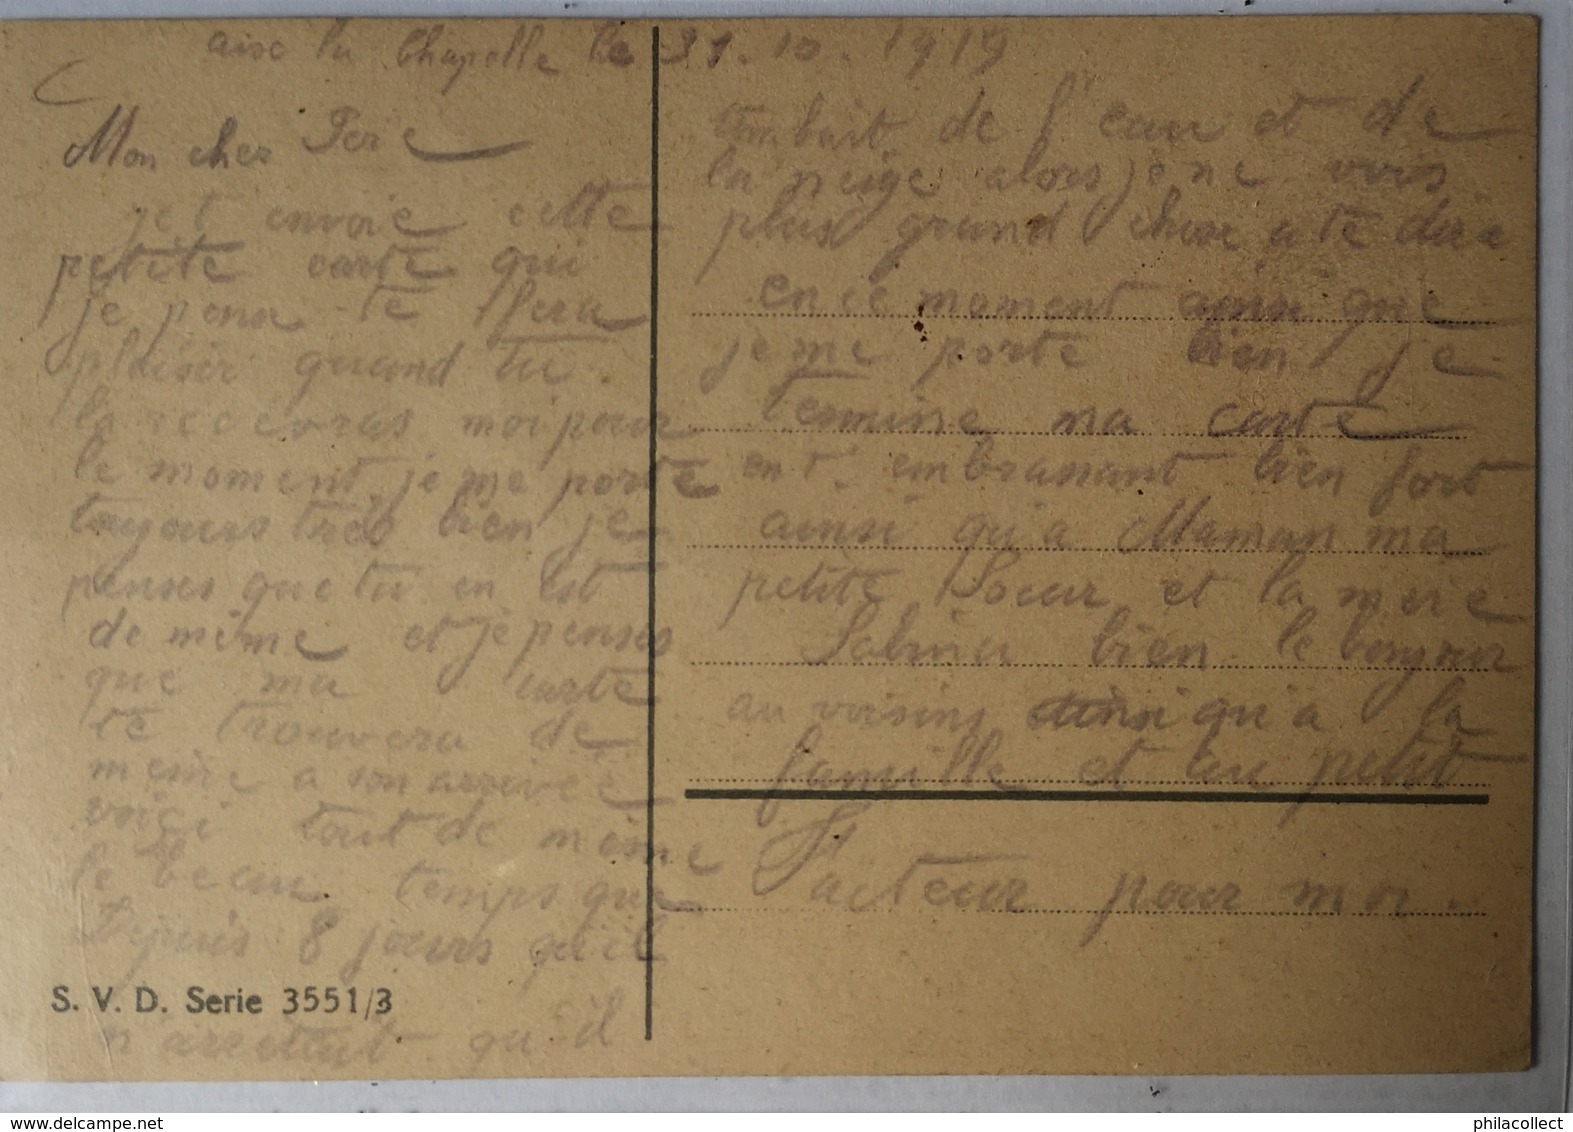 aixe la Chapelle le 31.10.1919
Mon cher Pere
je t envoie cette
petite carte qui
je pensa te fera
plaisir quand tu
la recevras moi pour
le moment je me porte
toujours très bien je
penses que tu en est
de même et je penses
que ma carte
te trouvera de
meme a son arrivée
voici tout de même
le beau temps que
Depuis 8 jours qu'il
S. V. D. Serie 3551/3
n'arretait qu il
tombait de l'eau et de
la neige alors je ne vois
plus grand chose a te dire
en ce moment ainsi que
je me porte bien je
termine ma carte
en t' embrassant bien fort
ainsi qu'a Maman ma
petite Soeur et la mere
Sabina bien le bonjour
au voisins ainsi qu'a la
famille et au petit
Facteur pour moi.
www.delcampe.net
philacollect